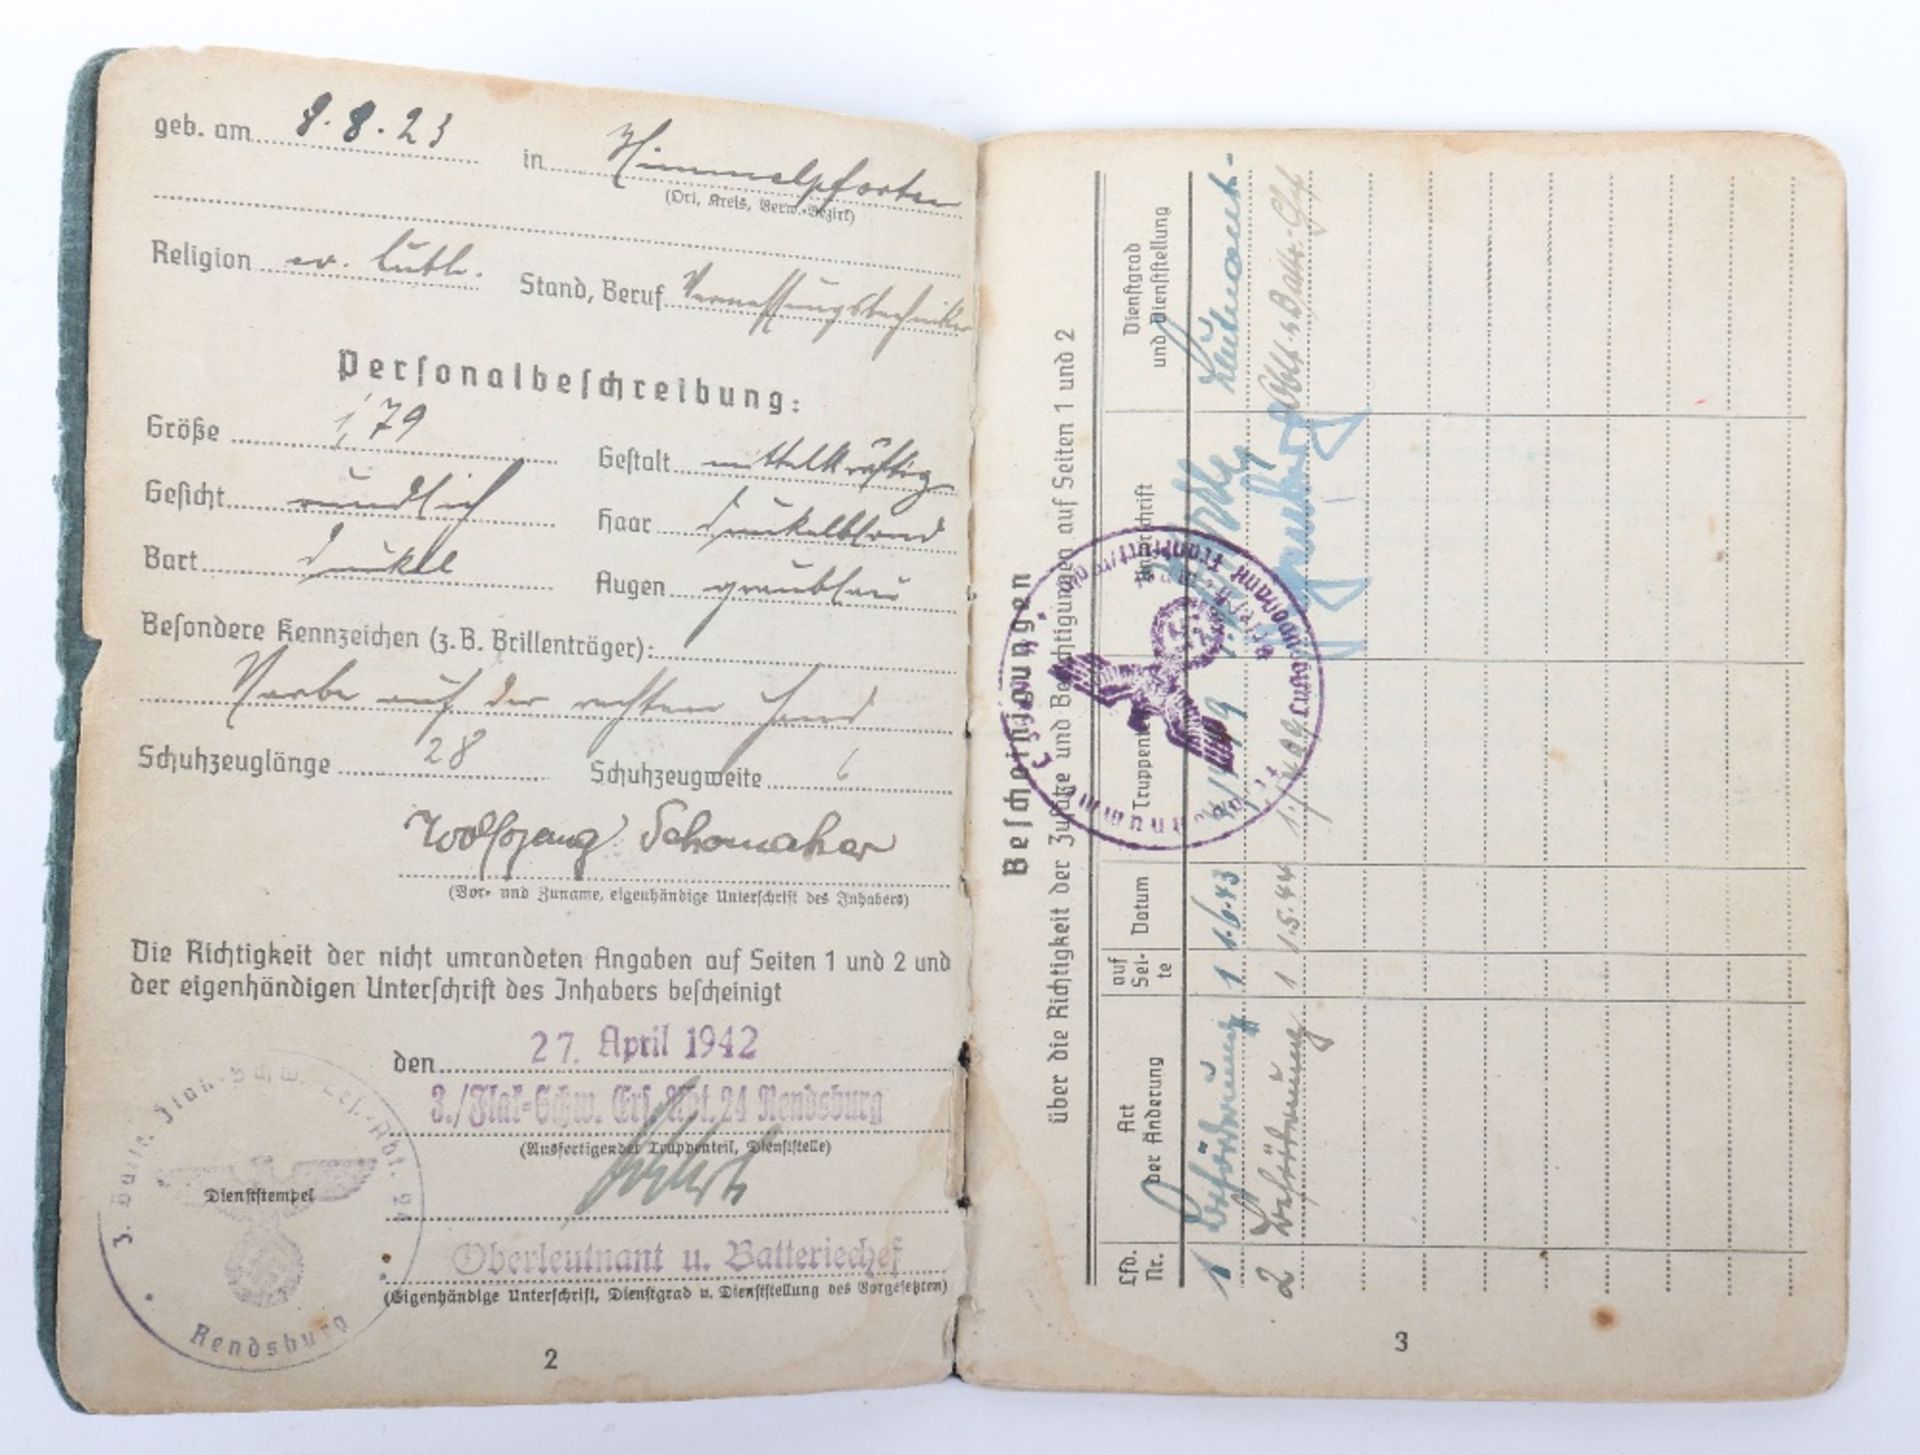 geb. am 8.8.23 in Himmelpforten
(Ort, Kreis, Verw.-Bezirk)
Religion ev. luth. Stand, Beruf Vermessungstechniker
Personalbeschreibung:
Größe 1,79 Gestalt mittelkräftig
Gesicht rundlich Haar dunkelblond
Bart dunkel Augen graublau
Besondere Kennzeichen (z. B. Brillenträger):
Narbe auf der rechten Hand
Schuhzeuglänge 28 Schuhzeugweite 6
Wolfgang Schomaker
(Vor- und Zuname, eigenhändige Unterschrift des Inhabers)
Die Richtigkeit der nicht umrandeten Angaben auf Seiten 1 und 2 und
der eigenhändigen Unterschrift des Inhabers bescheinigt
den 27. April 1942
3./Flak-Schw. Ers. Abt. 24 Rendsburg
(Ausfertigender Truppenteil, Dienststelle)
3. Battr. Flak-Schw. Ers.-Abt. 24
Rendsburg
Dienststempel
Oberleutnant u. Batteriechef
(Eigenhändige Unterschrift, Dienstgrad u. Dienststellung des Vorgesetzten)
2
Bescheinigungen
über die Richtigkeit der Zusätze und Berichtigungen auf Seiten 1 und 2
Lfd. Nr. Art der Änderung auf Seite Datum Truppenteil Unterschrift Dienstgrad und Dienststellung
1 Beförderung 1 1.6.43 Leutnant
2 Beförderung 1 1.5.44 Oblt. u. Battr.-Chef
3